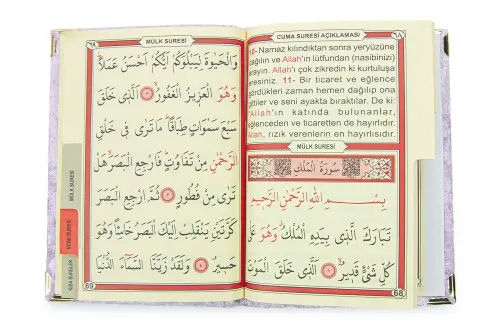 CUMA SURESİ AÇIKLAMASI ٦٨
10- Namaz kılındıktan sonra yeryüzüne
dağılın ve Allah'ın lütfundan (nasibinizi)
arayın. Allah'ı çok zikredin ki kurtuluşa
eresiniz. 11- Bir ticaret ve eğlence
gördükleri zaman hemen dağılıp ona
gittiler ve seni ayakta bıraktılar. De ki:
"Allah'ın katında bulunanlar,
eğlenceden ve ticaretten de hayırlıdır.
Allah, rızık verenlerin en hayırlısıdır.
MÜLK SURESİ
سُورَةُ الْمُلْكِ
بِسْمِ اللّٰهِ الرَّحْمٰنِ الرَّحِيمِ
تَبَارَكَ الَّذِى بِيَدِهِ الْمُلْكُ وَهُوَ عَلٰى
كُلِّ شَىْءٍ قَدِيرٌ ﴿١﴾ اَلَّذِى خَلَقَ الْمَوْتَ
68
٦٩ MÜLK SURESİ
وَالْحَيٰوةَ لِيَبْلُوَكُمْ اَيُّكُمْ اَحْسَنُ عَمَلًا
وَهُوَ الْعَزِيزُ الْغَفُورُ ﴿٢﴾ اَلَّذِى خَلَقَ
سَبْعَ سَمٰوَاتٍ طِبَاقًا مَا تَرٰى فِى خَلْقِ
الرَّحْمٰنِ مِنْ تَفَاوُتٍ فَارْجِعِ الْبَصَرَ هَلْ
تَرٰى مِنْ فُطُورٍ ﴿٣﴾ ثُمَّ ارْجِعِ الْبَصَرَ
كَرَّتَيْنِ يَنْقَلِبْ اِلَيْكَ الْبَصَرُ خَاسِئًا وَهُوَ
حَسِيرٌ ﴿٤﴾ وَلَقَدْ زَيَّنَّا السَّمَاءَ الدُّنْيَا
69
MÜLK SURESİ
KISA SURELER